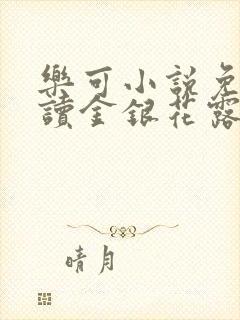 樂可小說免
讀金銀花露
晴月